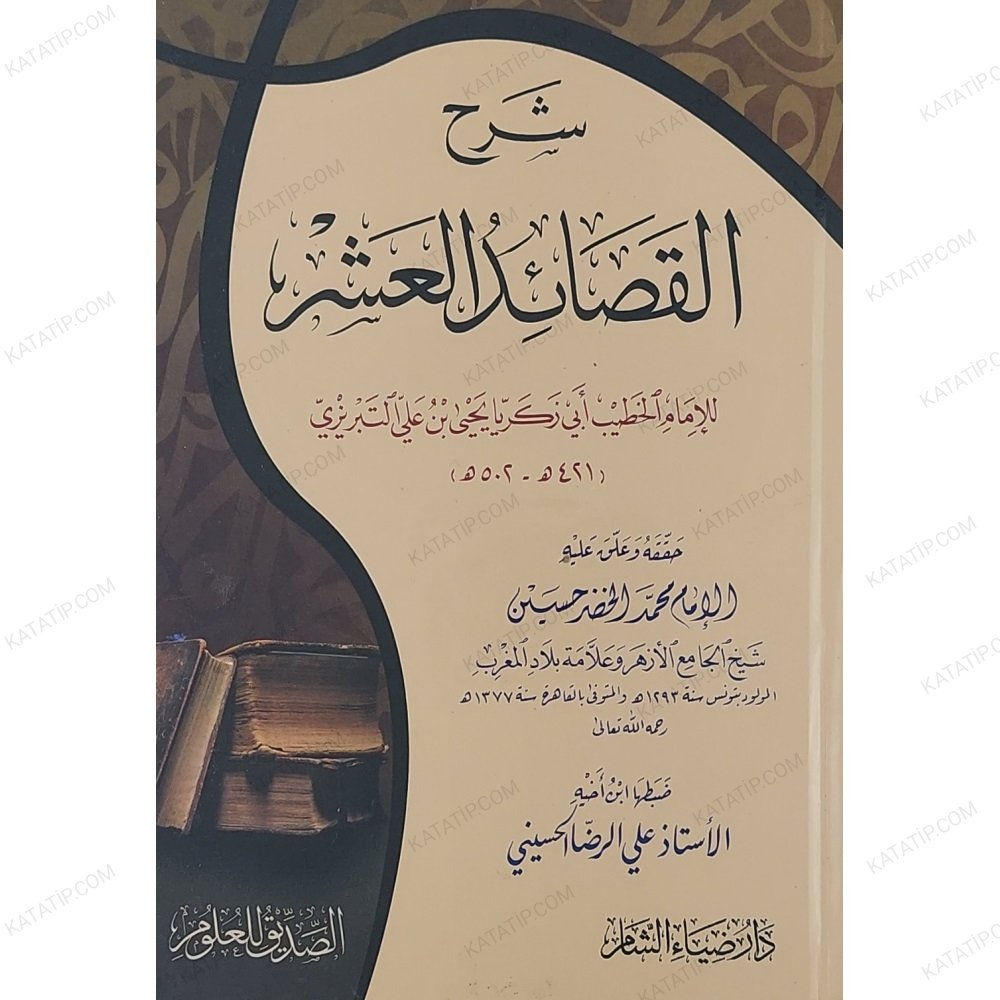 شرح
القصائد العشر
للإمام الخطيب أبي زكريا يحيى بن علي التبريزي
(٤٢١هـ - ٥٠٢هـ)
حققه وعلق عليه
الإمام محمد الخضر حسين
شيخ الجامع الأزهر وعلامة بلاد المغرب
المولود بتونس سنة ١٢٩٣هـ والمتوفى بالقاهرة سنة ١٣٧٧هـ
رحمه الله تعالى
ضبطها ابن أخيه
الأستاذ علي الرضا الحسيني
دار ضياء الشام
الصديق للعلوم
KATATİP.COM